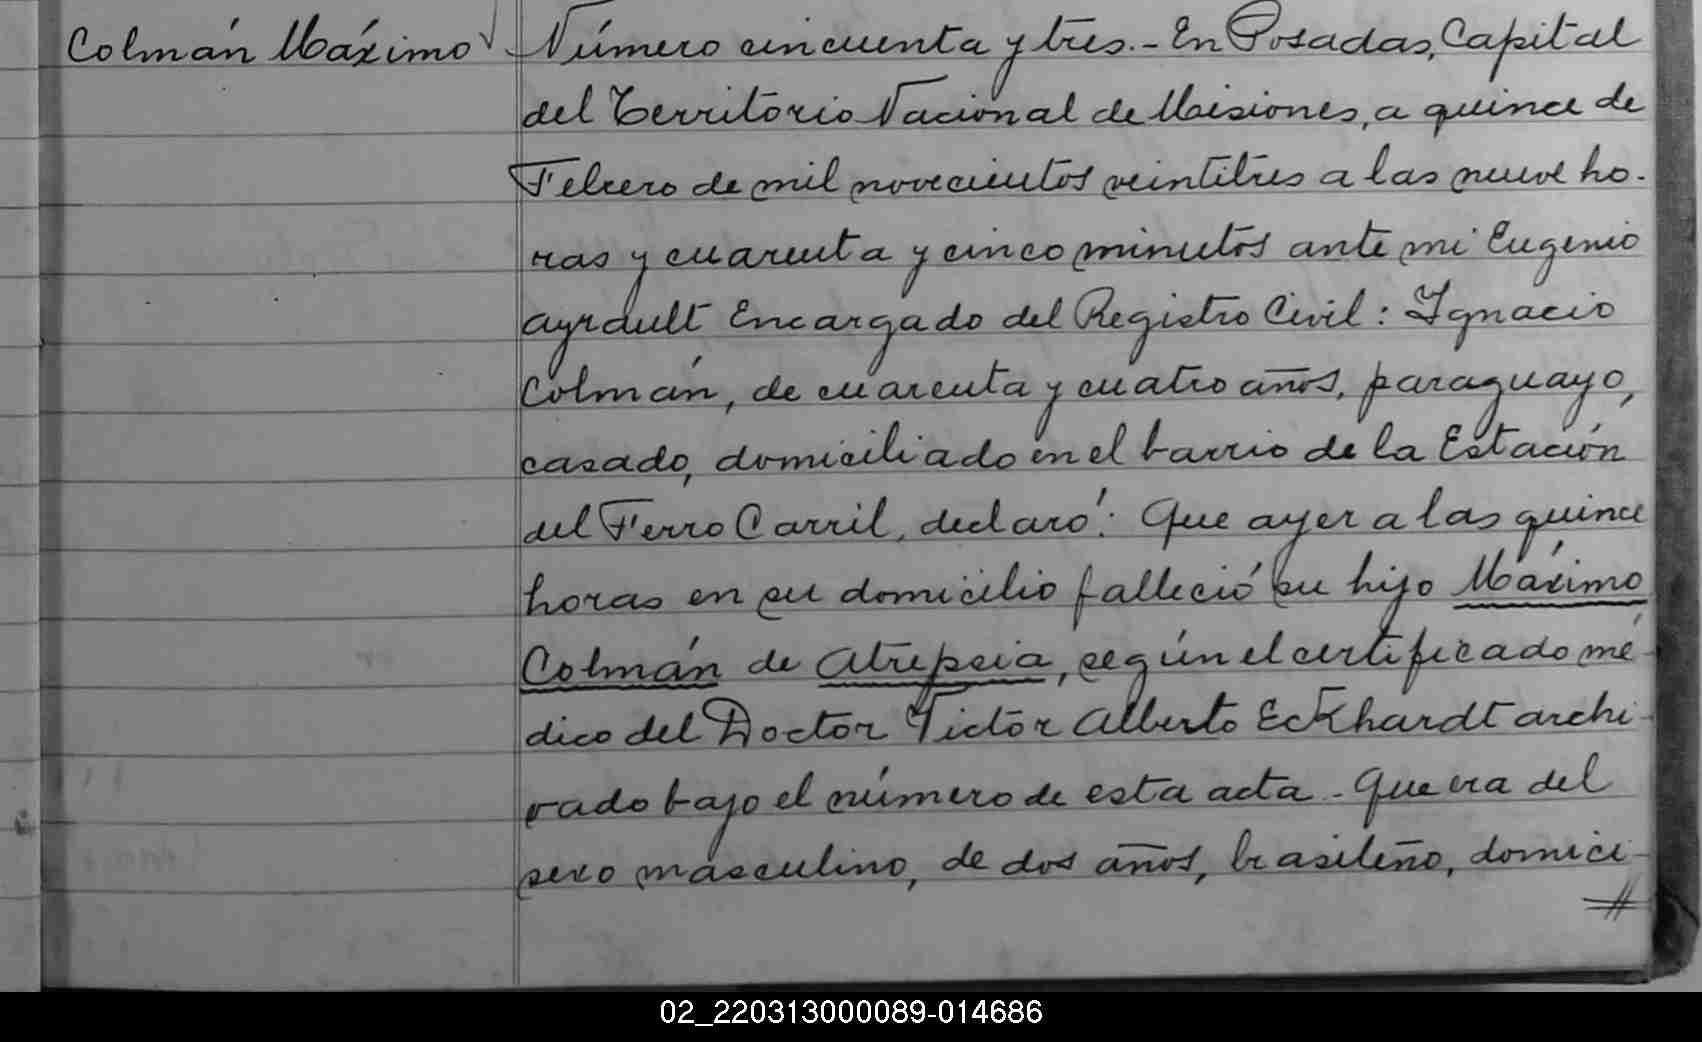 Colmán Máximo
Número cincuenta y tres.- En Posadas, Capital
del Territorio Nacional de Misiones, a quince de
Febrero de mil novecientos veintitres a las nueve ho-
ras y cuarenta y cinco minutos ante mi Eugenio
Ayrault Encargado del Registro Civil: Ygnacio
Colmán, de cuarenta y cuatro años, paraguayo,
casado, domiciliado en el barrio de la Estación
del Ferro Carril, declaró: Que ayer a las quince
horas en su domicilio falleció su hijo Máximo
Colmán de Atrepsia, según el certificado mé-
dico del Doctor Victor Alberto Eckhardt archi-
vado bajo el número de esta acta - Que era del
sexo masculino, de dos años, brasileño, domici-
02_220313000089-014686